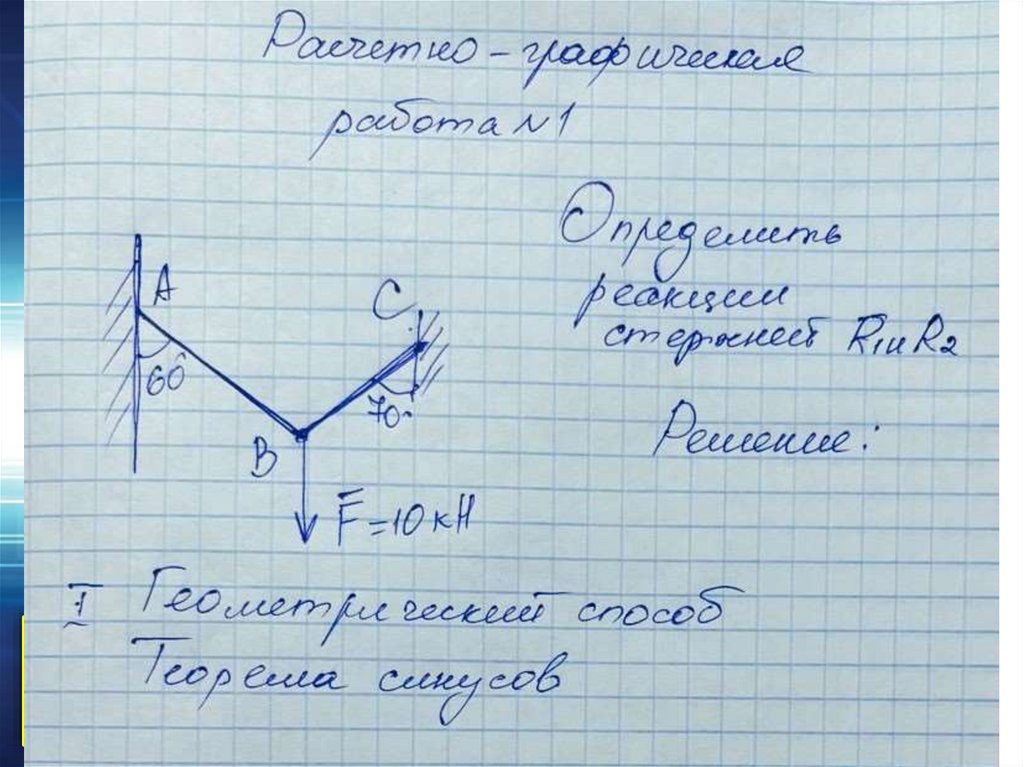 Расчетно - графическая
работа №1
Определить
реакции
стержней R1 и R2
Решение:
A
C
60°
70°
B
F = 10 кН
I Геометрический способ
Теорема синусов